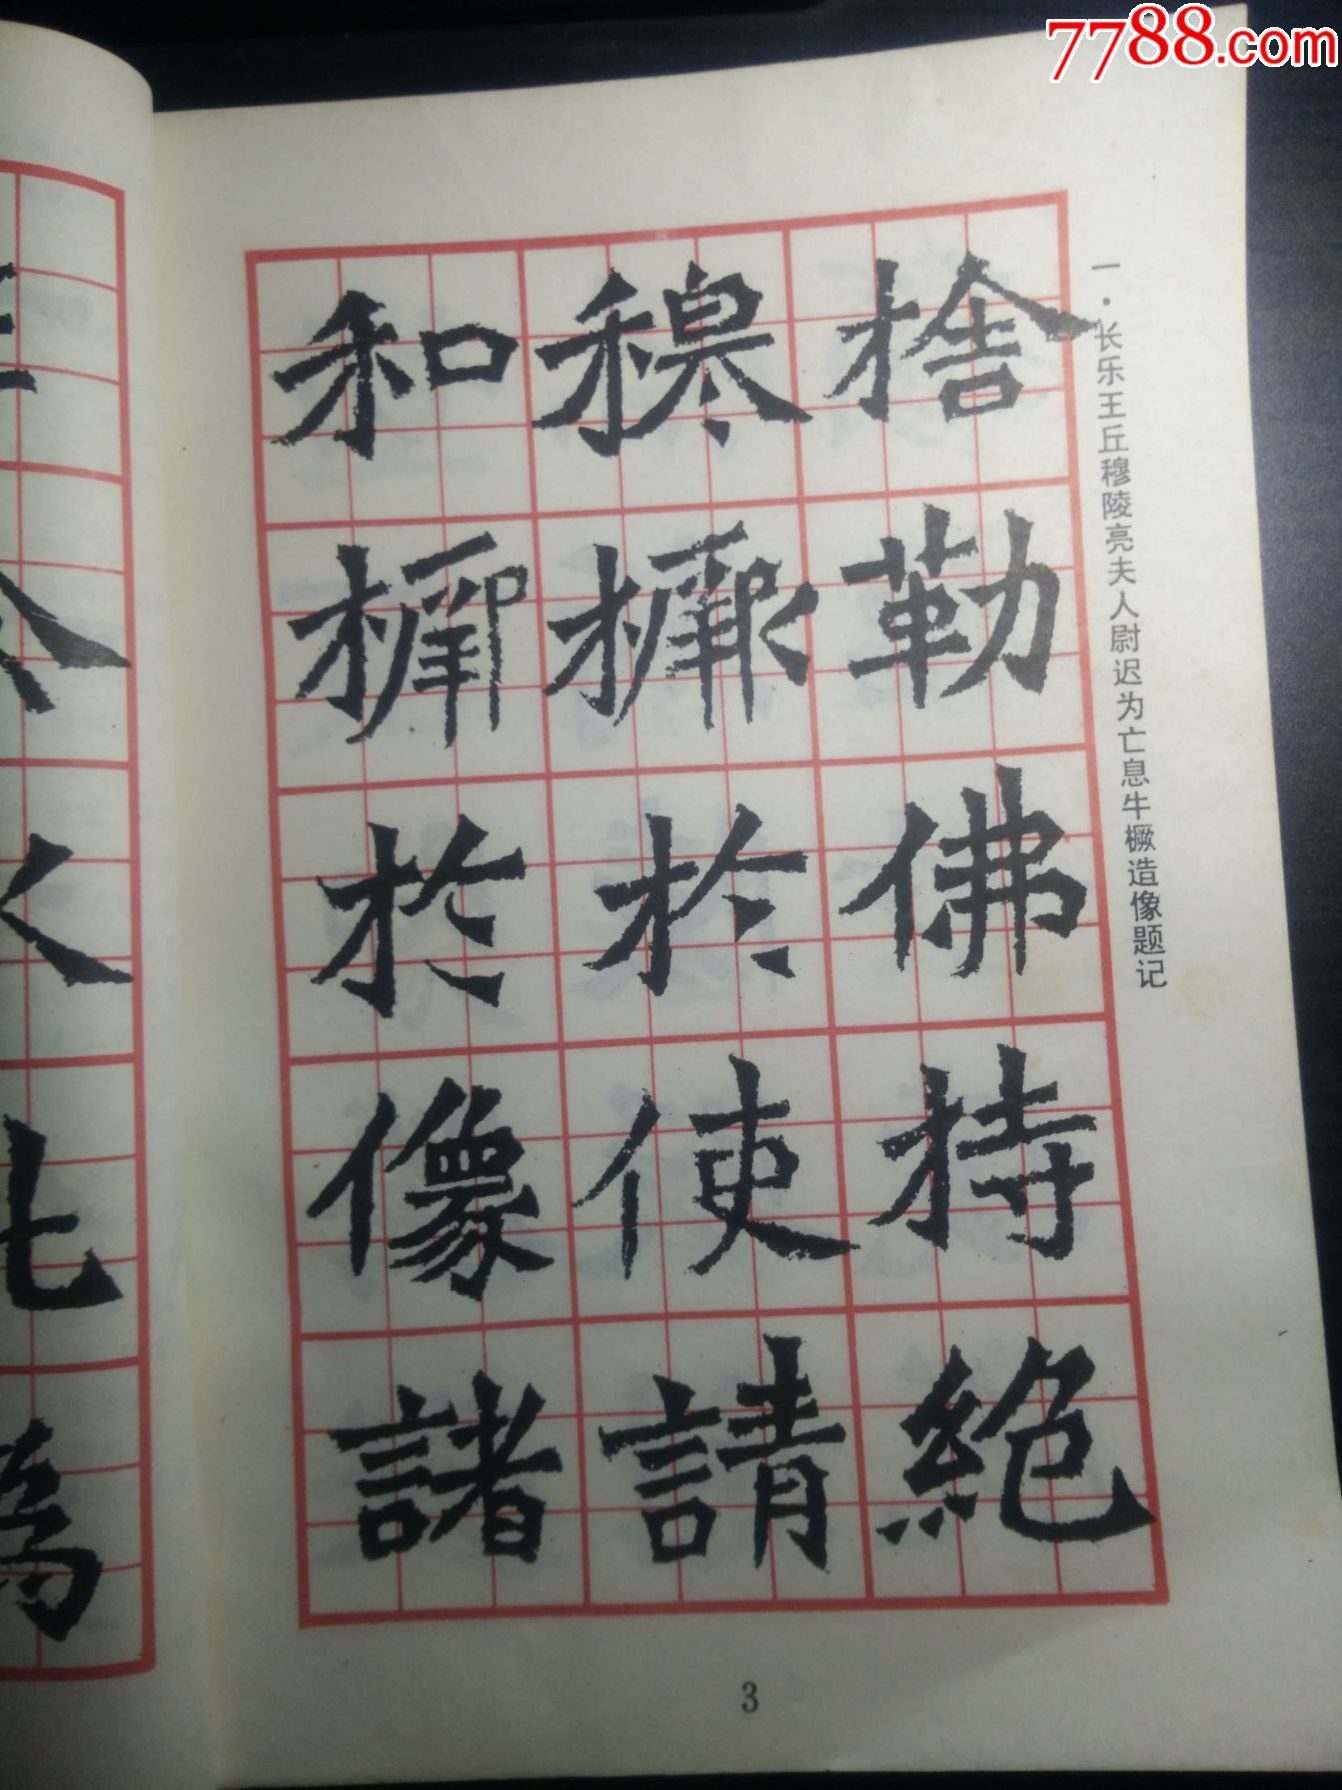 7788.com
一·长乐王丘穆陵亮夫人尉迟为亡息牛橛造像题记
捨勒佛持絶
穆橛於使請
和於像諸
3